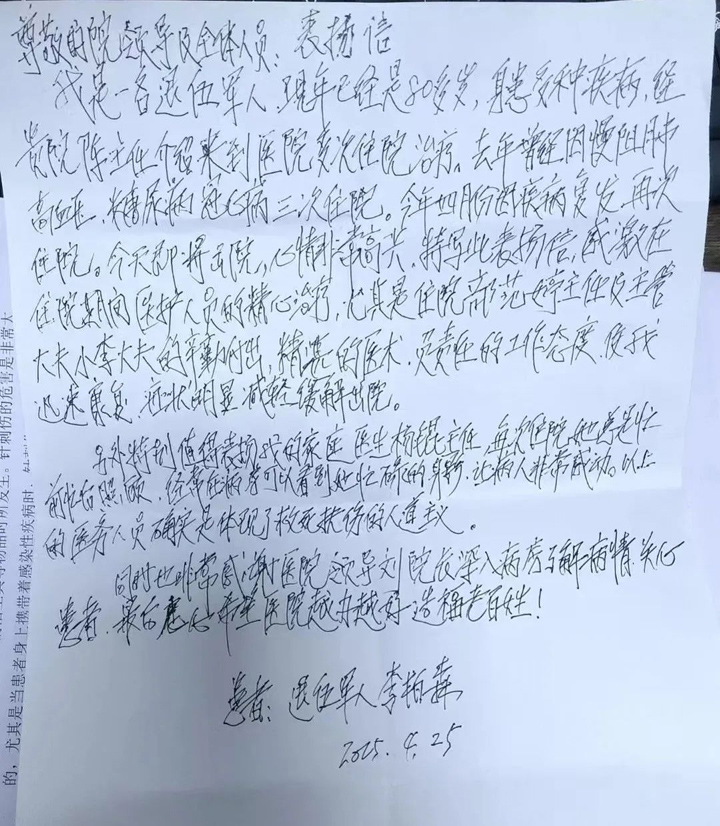 尊敬的院领导及全体人员：表扬信
我是一名退伍军人，现年已经是80多岁，身患多种疾病，经
贵院陈主任介绍来到医院多次住院治疗。去年曾经因慢阻肺
高血压、糖尿病冠心病三次住院。今年四月份因疾病复发再次
住院。今天即将出院，心情非常高兴，特写此表扬信，感激在
住院期间医护人员的精心治疗，尤其是住院部范婷主任及主管
大夫小李大夫的辛勤付出，精湛的医术，负责任的工作态度，使我
迅速康复，症状明显减轻缓解出院。
另外特别值得表扬我的家庭医生杨锟主任，每次住院她总是忙
前忙后照顾，经常在病房可以看到她忙碌的身影，让病人非常感动。以上
的医务人员确实是体现了救死扶伤的人道主义。
同时也非常感谢医院领导刘院长深入病房了解病情关心
患者，最后衷心希望医院越办越好造福老百姓！
患者：退伍军人李柏森
2025.4.25
的，尤其是当患者身上携带着感染性疾病时，
针刺伤的危害是非常大